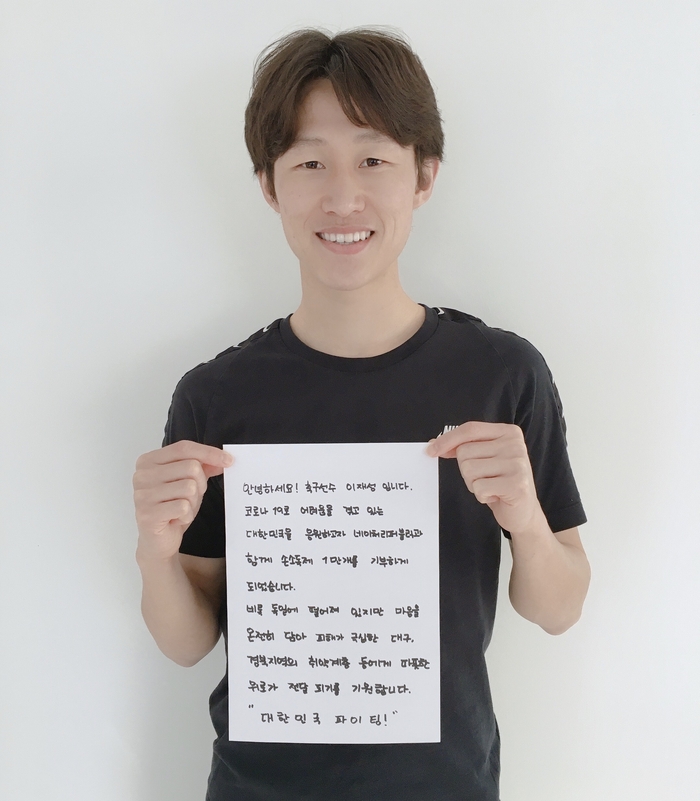 안녕하세요! 축구선수 이재성 입니다.
코로나 19로 어려움을 겪고 있는
대한민국을 응원하고자 네이처리퍼블릭과
함께 손소독제 1만개를 기부하게
되었습니다.
비록 독일에 떨어져 있지만 마음을
온전히 담아 피해가 극심한 대구,
경북지역의 취약계층 등에게 따뜻한
위로가 전달 되기를 기원합니다.
"대한민국 파이팅!"